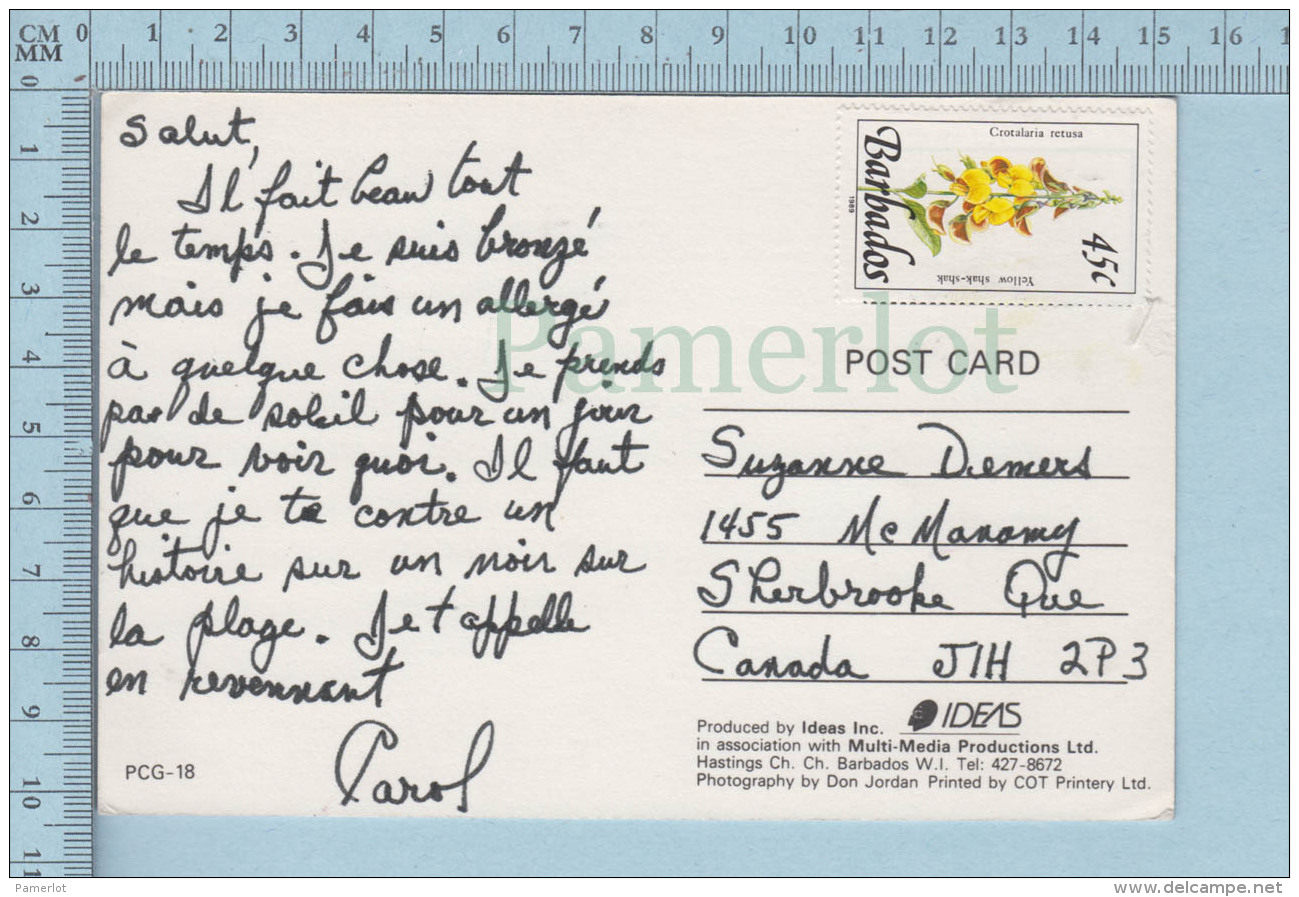 CM 0 1 2 3 4 5 6 7 8 9 10 11 12 13 14 15 16 1
MM
0
1
2
3
4
5
6
7
8
9
10
11
Salut,
Il fait beau tout
le temps. Je suis bronzé
mais je fais un allergé
à quelque chose. Je prends
pas de soleil pour un jour
pour voir quoi. Il faut
que je te contre un
histoire sur un noir sur
la plage. Je t appelle
en revennant
Carol
PCG-18
Crotalaria retusa
Barbados
1989
45c
Yellow shak-shak
Pamerlot
POST CARD
Suzanne Demers
1455 McManamy
Sherbrooke Que
Canada J1H 2P3
IDEAS
Produced by Ideas Inc.
in association with Multi-Media Productions Ltd.
Hastings Ch. Ch. Barbados W.I. Tel: 427-8672
Photography by Don Jordan Printed by COT Printery Ltd.
Pamerlot
www.delcampe.net